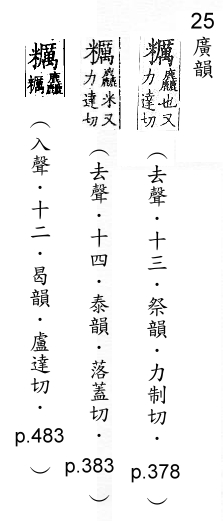 25
廣韻
糲麤也又力達切（去聲．十三．祭韻．力制切．p.378）
糲麤米又力達切（去聲．十四．泰韻．落蓋切．p.383）
糲麤糲（入聲．十二．曷韻．盧達切．p.483）